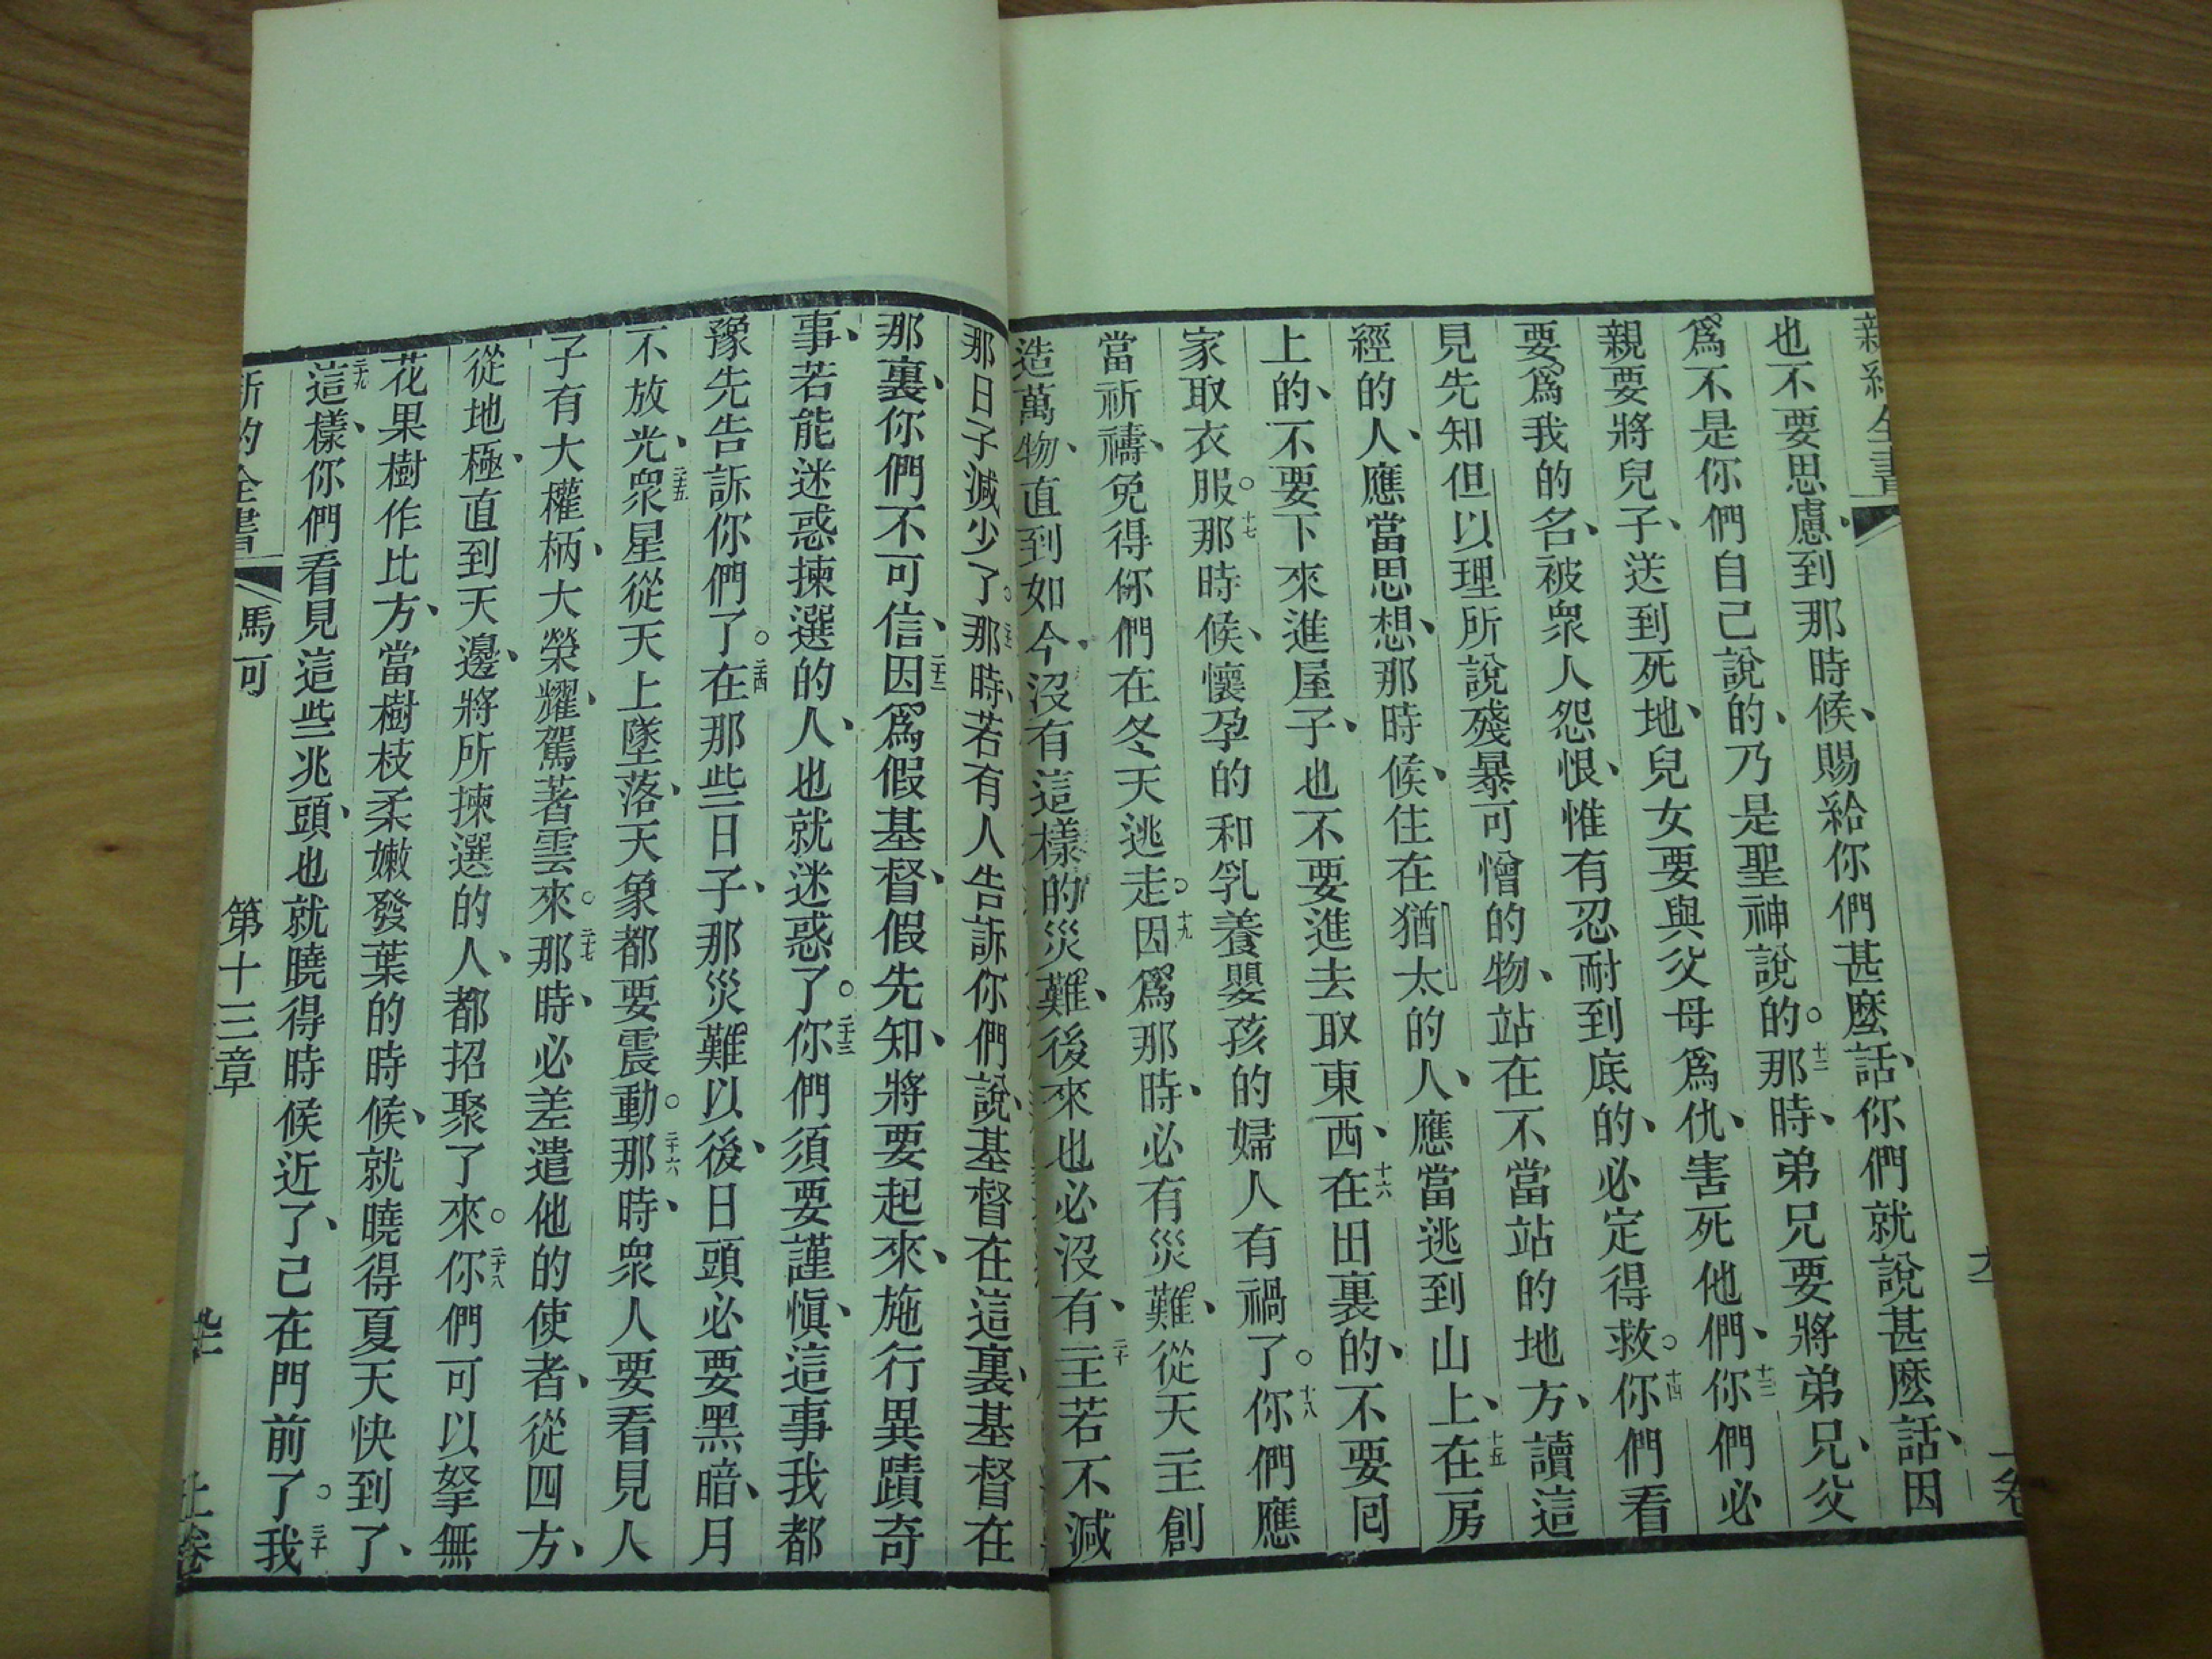 也不要思慮、到那時候、賜給你們甚麽話、你們就說甚麽話、因
爲不是你們自己說的、乃是聖神說的。十二那時、弟兄要將弟兄、父
親要將兒子、送到死地、兒女要與父母爲仇、害死他們、十三你們必
要爲我的名、被衆人怨恨、惟有忍耐到底的、必定得救。十四你們看
見先知但以理所說殘暴可憎的物、站在不當站的地方、讀這
經的人、應當思想、那時候、住在猶太的人、應當逃到山上、十五在房
上的、不要下來進屋子、也不要進去取東西、十六在田裏的、不要囘
家取衣服。十七那時候、懷孕的和乳養嬰孩的婦人有禍了。十八你們應
當祈禱、免得你們在冬天逃走。十九因爲那時、必有災難、從天主創
造萬物、直到如今、沒有這樣的災難、後來也必沒有、二十主若不減
那日子減少了。那時、若有人告訴你們說、基督在這裏、基督在
那裏、你們不可信、二十二因爲假基督、假先知、將要起來、施行異蹟奇
事、若能迷惑揀選的人、也就迷惑了。二十三你們須要謹愼、這事我都
豫先告訴你們了。二十四在那些日子、那災難以後、日頭必要黑暗、月
不放光、二十五衆星從天上墜落、天象都要震動。二十六那時、衆人要看見人
子有大權柄、大榮耀、駕著雲來。二十七那時、必差遣他的使者、從四方、
從地極、直到天邊、將所揀選的人、都招聚了來。二十八你們可以拏無
花果樹作比方、當樹枝柔嫩發葉的時候、就曉得夏天快到了、
二十九這樣、你們看見這些兆頭、也就曉得時候近了、已在門前了。三十我
新約全書 馬可 第十三章 上卷